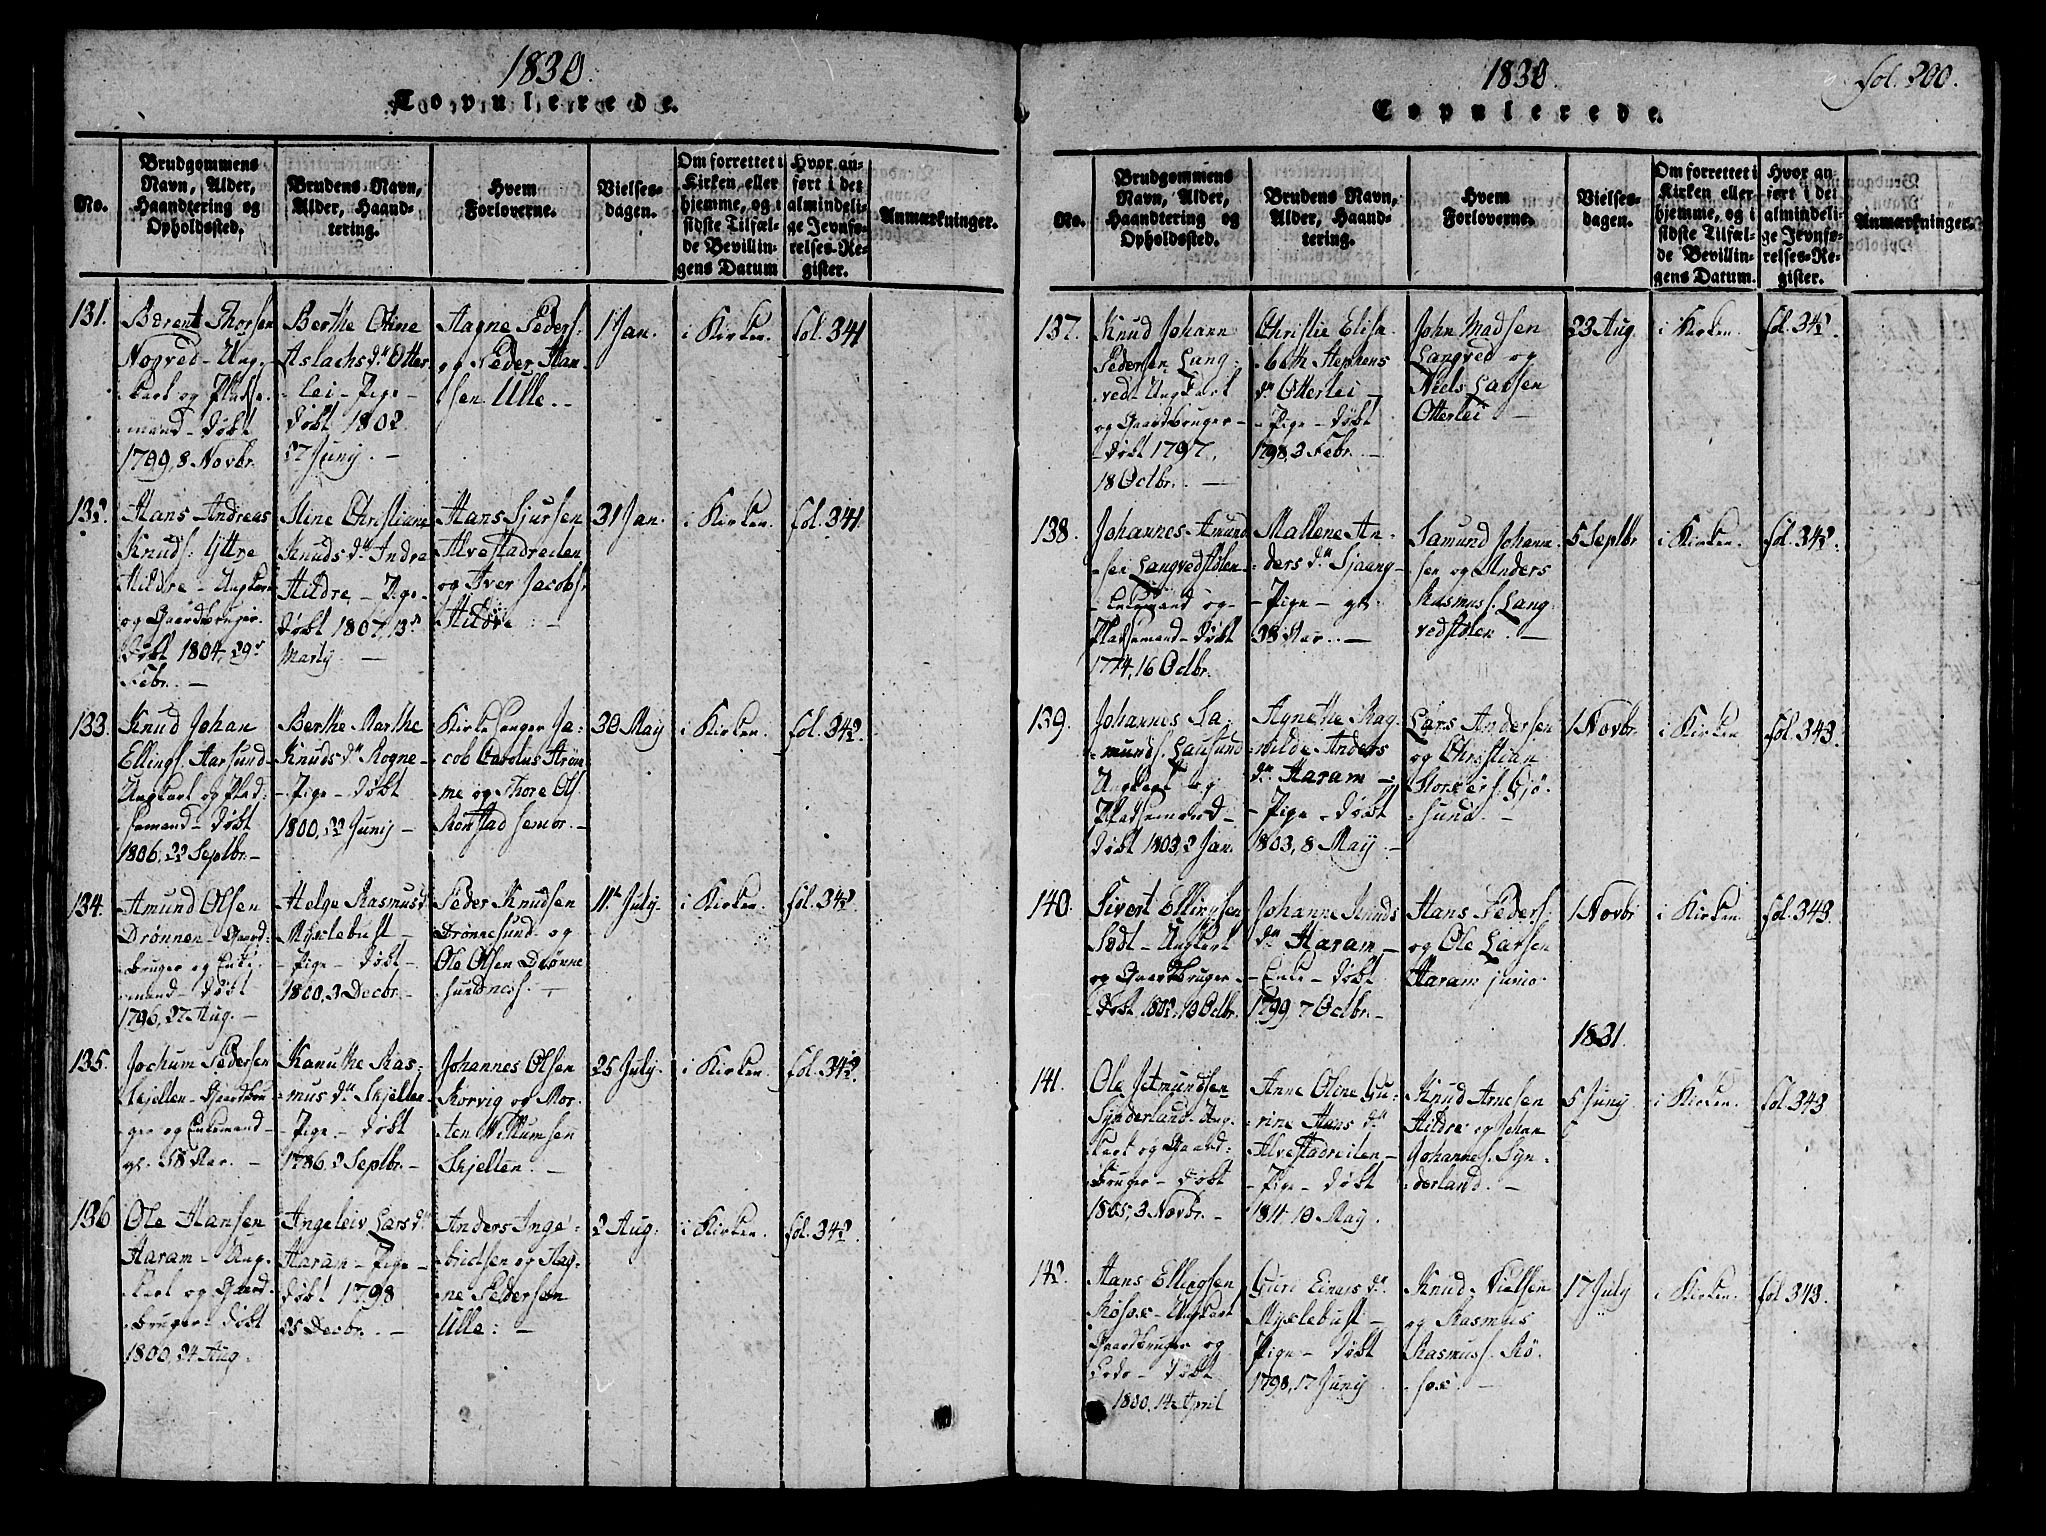 1830.
Copulerede.
No.
Brudgommens
Navn, Alder,
Haandtering og
Opholdssted.
Brudens Navn,
Alder, Haand-
tering.
Hvem
Forloverne.
Vielses-
dagen.
Om forrettet i
Kirken eller
hjemme, og i
sidste Tilfæl-
de Bevillin-
gens Datum
Hvor an-
ført i det
almindeli-
ge Jevnfø-
relses-Re-
gister.
Anmærkninger.
131.
Berent Thorsen
Nogved - Ung-
karl og Pladse-
mand - døbt
1799, 8 Novbr.
Berthe Oline
Aslachs dr Otter-
lei - Pige -
døbt 1802
27 Junij. -
Aagne Peders:
og Peder Han-
sen Ulle. -
1 Jan.
i Kirken.
fol. 341
132.
Hans Andreas
Knuds: Yttre
Hildre - Ungkarl
og Gaardbruger.
Døbt 1804, 29
Febr. -
Stine Christiane
Knuds dr Indre
Hildre - Pige -
døbt 1807, 15
Martij -
Hans Sjursen
Alvestadreilen
og Iver Jacobs:
Hildre: -
31 Jan.
i Kirken.
fol. 341
133.
Knud Johan
Ellings. Aarsund -
Ungkarl og Plad-
semand - døbt
1806, 22 Septbr. -
Berthe Marthe
Knuds dr Rogne -
- Pige - døbt
1800, 22 Junij -
Kirkesanger Ja-
cob Carolus Strøm-
me og Thore Ols:
Rønstad senior. -
30 May
i Kirken.
fol. 342.
134.
Amund Olsen
Drønnen - Gaard-
bruger og Enke-
mand - døbt
1796, 27 Aug. -
Helge Rasmus dr
Myxlebust -
- Pige - døbt -
1800, 3 Decbr. -
Peder Knudsen
Drønnesund og
Ole Olsen Drønne-
sundness. -
11 July -
i Kirken.
fol. 342.
135.
Jochum Pedersen
Skjelten - Gaardbru-
ger og Enkemand -
gl. 58 Aar. -
Kanuthe Ras-
mus dr Skjelten
- Pige - døbt
1786, 2 Septbr. -
Johannes Olsen
Korvig og Mor-
ten Willumsen
Skjelten. -
25 July.
i Kirken.
fol. 342.
136
Ole Hansen
Haram - Ung-
karl og Gaard-
bruger døbt
1800, 24 Aug.
Angeleiv Lars dr
Haram - Pige -
døbt 1798
25 Decbr. -
Anders Inge-
bridtsen og Aag-
ne Pedersen
Ulle: -
2 Aug:
i Kirken.
fol. 342.
1830.
fol. 200.
Copulerede.
No.
Brudgommens
Navn, Alder,
Haandtering og
Opholdssted.
Brudens Navn,
Alder, Haand-
tering.
Hvem
Forloverne.
Vielses-
dagen.
Om forrettet i
Kirken eller
hjemme, og i
sidste Tilfæl-
de Bevillin-
gens Datum.
Hvor an-
ført i det
almindeli-
ge Jevnfø-
relses-Re-
gister.
Anmærkninger.
137.
Knud Johann
Pedersen Lang-
vedt Ungkarl
og Gaardbruger -
døbt 1797,
18 Octbr. -
Christie Elisa-
beth Stephens
dr Otterlei -
- Pige - døbt
1798, 3 Febr. -
John Madsen
Langved og
Niels Larsen
Otterlei -
23 Aug.
i Kirken.
fol. 342.
138.
Johannes Amund-
sen Langvedstølen
- Enkemand og -
Pladsemand - døbt
1774, 16 Octbr.
Mallene An-
ders dr Sjaang -
- Pige - gl:
38 Aar. -
Samund Johann-
sen og Anders
Rasmus. Lang-
vedstølen. -
5 Septbr
i Kirken.
fol. 342.
139.
Johannes Sa-
munds. Lausund
Ungkarl og
Pladsemand -
døbt 1803, 2 Jan.
Agnethe Rag-
nilde Anders
dr Haram -
- Pige - døbt
1803, 8 May -
Lars Andersen
og Christian
Storkers. Gjø-
sund. -
1 Novbr
i Kirken
fol. 343.
140.
Sivert Ellingsen
Sædt - Ungkarl
og Gaardbruger -
Døbt 1802, 10 Octbr.
Johanne Knuds
dr Haram -
- Enke - døbt
1799 7 Octbr. -
Hans Peders:
og Ole Larsen
Haram junio-
1 Novbr
i Kirken
fol. 343.
1831.
141.
Ole Jetmundsen
Synderland - Ung-
karl og Gaard-
bruger - døbt
1805, 3 Novbr. -
Anne Oline Gu-
rine Hans dr
Alvestadreiten -
- Pige - døbt
1811 10 May.
Knud Arnesen
Hildre og Johan
Johannes. Syn-
derland. -
5 Junij
i Kirken.
fol. 343
142.
Hans Ellingsen
Røsox - Ungkarl
Gaardbruger og
- døbt
1800, 14 April
Guri Einars dr
Myxlebust -
Pige - døbt
1798, 17 Junij
Knud Nielsen
og Rasmus
Rasmuss. Rø-
sox. -
17 July
i Kirken.
fol. 343.